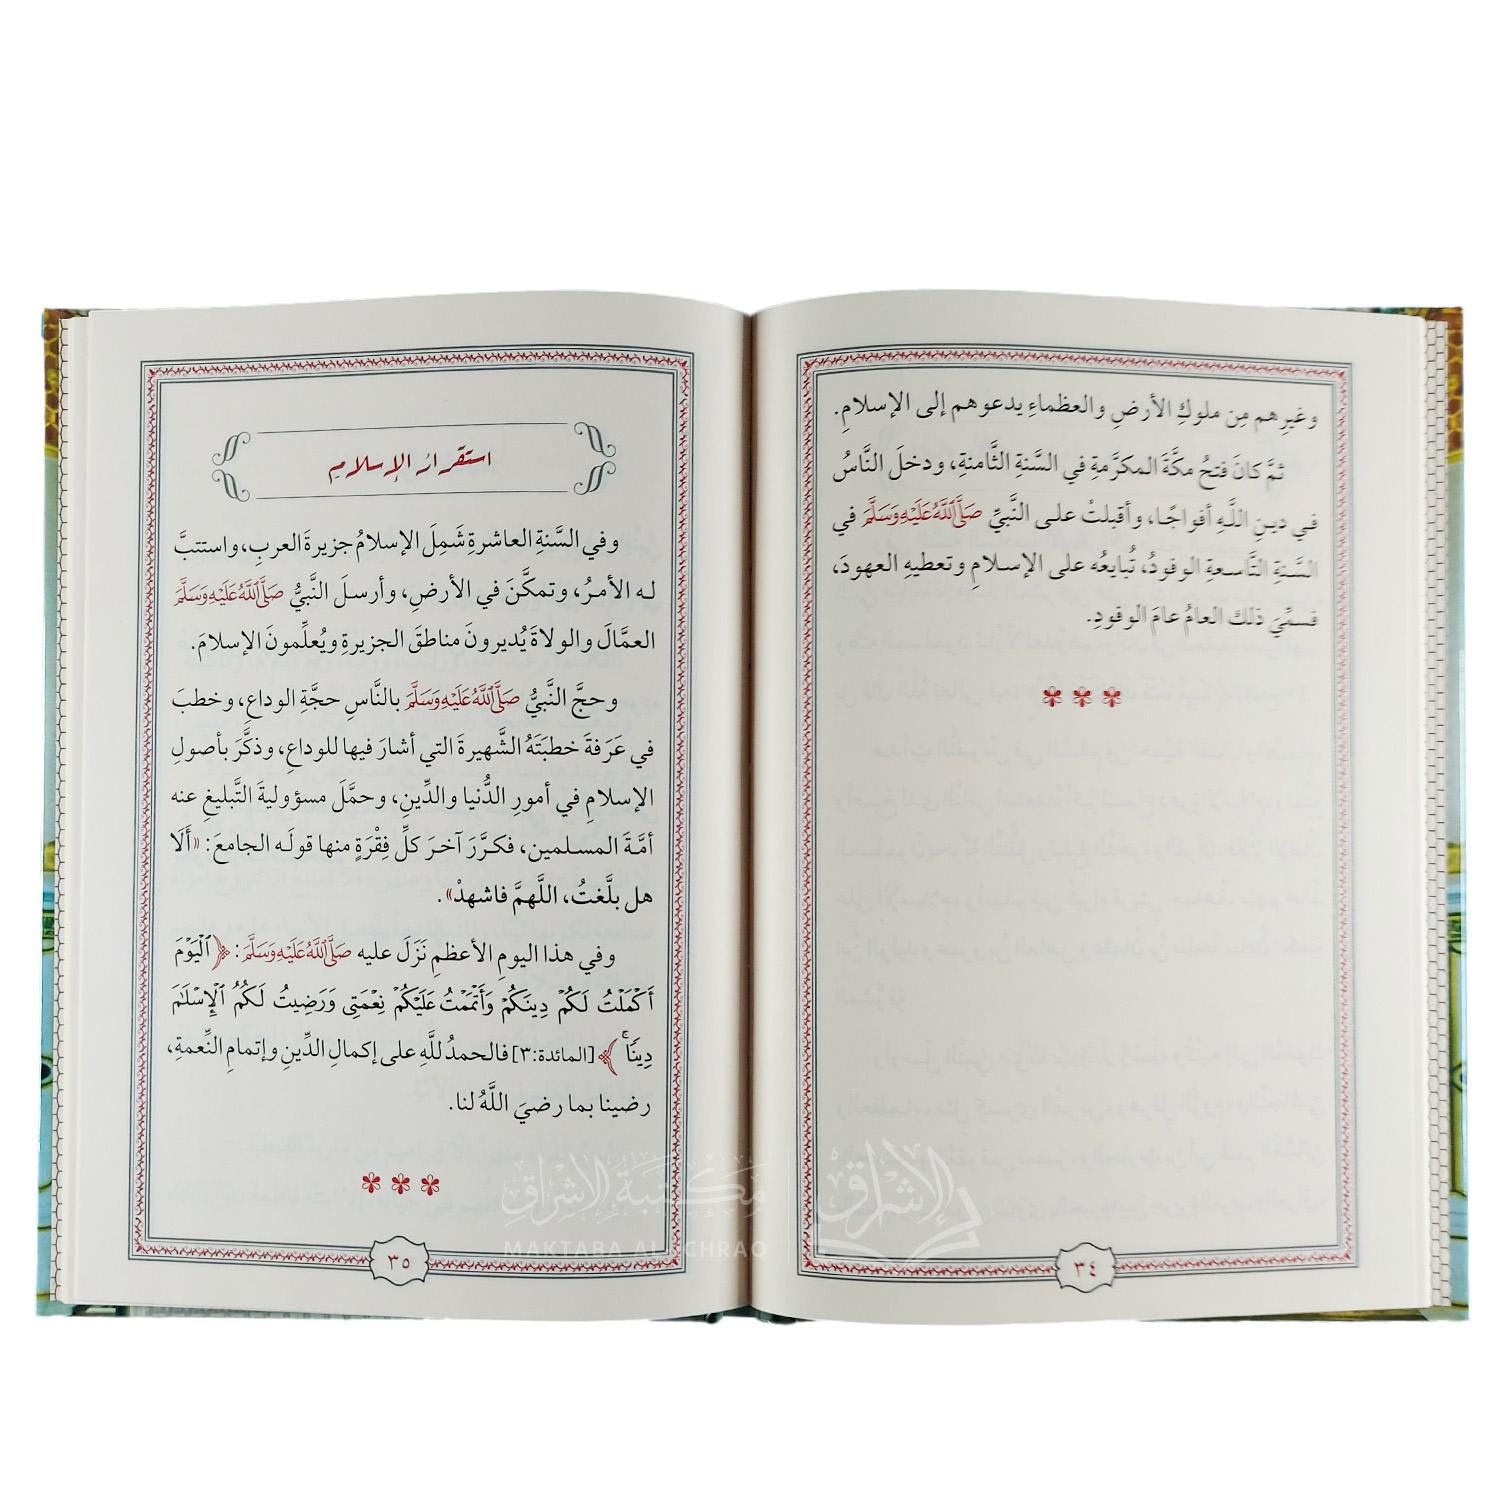 وغيرِهم مِن ملوكِ الأرضِ والعظماءِ يدعوهم إلى الإسلامِ.
ثمَّ كانَ فتحُ مكَّةَ المكرَّمةِ في السَّنةِ الثَّامنةِ، ودخلَ النَّاسُ
في دينِ اللَّهِ أفواجًا، وأقبلتْ على النَّبيِّ صَلَّى اللَّهُ عَلَيْهِ وَسَلَّمَ في
السَّنةِ التَّاسعةِ الوفودُ، تُبايعُه على الإسلامِ وتعطيهِ العهودَ،
فسمِّيَ ذلك العامُ عامَ الوفودِ.
٣٤
استقرارُ الإسلامِ
وفي السَّنةِ العاشرةِ شَمِلَ الإسلامُ جزيرةَ العربِ، واستتبَّ
له الأمرُ، وتمكَّنَ في الأرضِ، وأرسلَ النَّبيُّ صَلَّى اللَّهُ عَلَيْهِ وَسَلَّمَ
العمَّالَ والولاةَ يُديرونَ مناطقَ الجزيرةِ ويُعلِّمونَ الإسلامَ.
وحجَّ النَّبيُّ صَلَّى اللَّهُ عَلَيْهِ وَسَلَّمَ بالنَّاسِ حجَّةَ الوداعِ، وخطبَ
في عَرَفةَ خطبَتَهُ الشَّهيرةَ التي أشارَ فيها للوداعِ، وذكَّرَ بأصولِ
الإسلامِ في أمورِ الدُّنيا والدِّينِ، وحمَّلَ مسؤوليةَ التَّبليغِ عنه
أمَّةَ المسلمين، فكرَّرَ آخرَ كلِّ فِقْرَةٍ منها قولَه الجامعَ: «أَلَا
هل بلَّغتُ، اللَّهمَّ فاشهدْ».
وفي هذا اليومِ الأعظمِ نَزَلَ عليه صَلَّى اللَّهُ عَلَيْهِ وَسَلَّمَ: ﴿ٱلۡيَوۡمَ
أَكۡمَلۡتُ لَكُمۡ دِينَكُمۡ وَأَتۡمَمۡتُ عَلَيۡكُمۡ نِعۡمَتِي وَرَضِيتُ لَكُمُ ٱلۡإِسۡلَٰمَ
دِينٗاۚ﴾ [المائدة:٣] فالحمدُ للَّهِ على إكمالِ الدِّينِ وإتمامِ النِّعمةِ،
رضينا بما رضيَ اللَّهُ لنا.
٣٥
مكتبة الإشراق
MAKTABA AL ICHRAQ
الإشراق